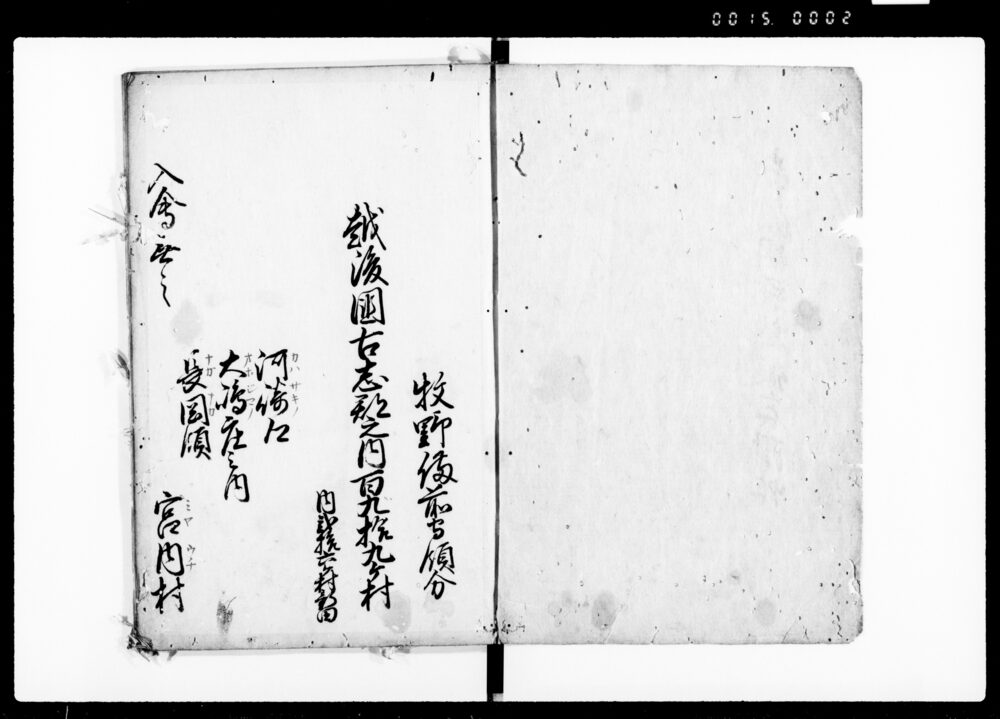 0015. 0002
牧野備前守領分
越後國古志郡之内百九拾九ヶ村
内弐拾六ヶ村新田
河崎江
カハサキノ
大嶋庄之内
オホシマノ
長岡領
ナガヲカ
宮内村
ミヤウチ
入會無之